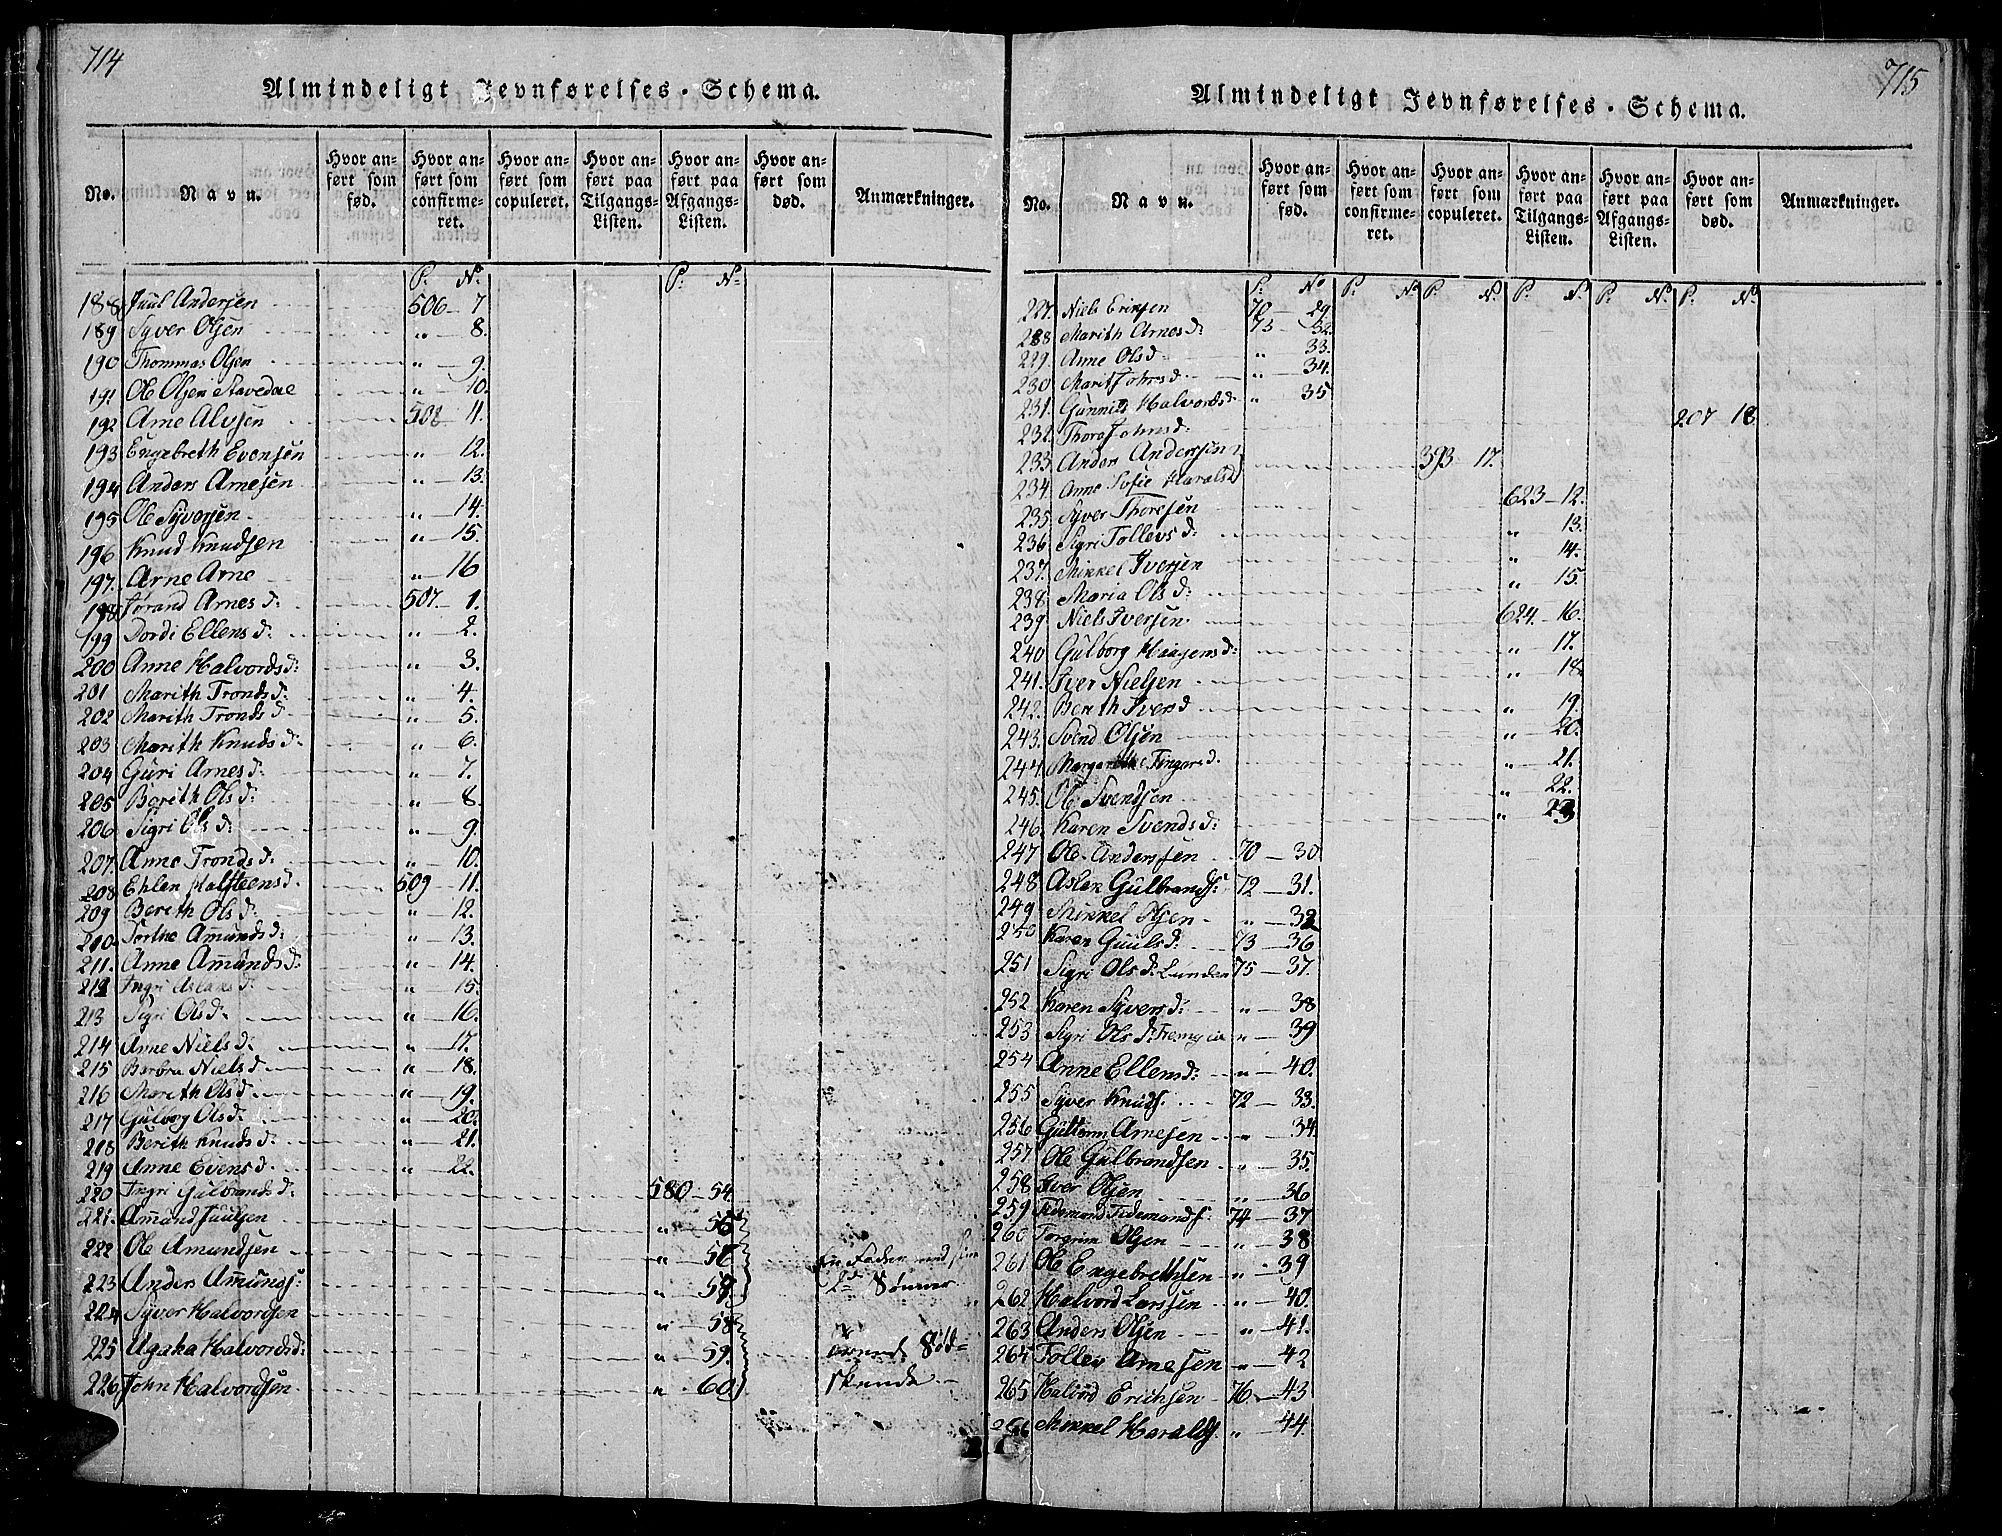 714
Almindeligt Jevnførelses-Schema.
No. Navn. Hvor anført som fød. Hvor anført som confirmeret. Hvor anført som copuleret. Hvor anført paa Tilgangs-Listen. Hvor anført paa Afgangs-Listen. Hvor anført som død. Anmærkninger.
P. No P. No
188 Juul Andersen 506 - 7
189 Syver Olsen " 8.
190 Thommas Olsen " - 9.
191 Ole Olsen Stavedal " - 10.
192 Arne Alvsen 508 - 11.
193 Engebreth Evensen " - 12.
194 Anders Arnesen " - 13.
195 Ole Syversen " - 14.
196 Knud Knudsen " - 15.
197. Arne Arne " - 16
198 Jørand Arnesd: 507 - 1.
199 Dordi Ellensd: " - 2.
200 Anne Halvordsd: " - 3.
201 Marith Trondsd: " - 4.
202 Marith Trondsd. " - 5.
203 Marith Knudsd: " - 6.
204 Guri Arnesd: " - 7.
205 Berith Olsd: " - 8.
206 Sigri Olsd: " - 9.
207. Anne Trondsd: " - 10.
208 Ehlen Halsteensd. 509 - 11.
209 Berith Olsd: " - 12.
210 Torthe Amundsd: " - 13.
211. Anne Amundsd: " - 14.
212 Ingri Aslaksd: " - 15.
213 Sigri Olsd: " - 16.
214 Anne Nielsd: " - 17.
215 Barbra Nielsd " - 18.
216 Marith Olsd: " - 19.
217 Gulborg Olsd: " - 20.
218 Berith Knudsd: " - 21.
219 Anne Evensd. " - 22.
220 Ingri Gulbrandsd: 580 - 54.
221. Amund Juulsen " - 55
222 Ole Amundsen " - 56
223 Anders Amunds: " - 57. en Fader med sine 2de Sønner
224 Syver Halvordsen " - 58
225 Agaha Halvordsd: " - 59.
226 John Halvordsen " - 60 Sødskende
715
Almindeligt Jevnførelses-Schema.
No. Navn. Hvor anført som fød. Hvor anført som confirmeret. Hvor anført som copuleret. Hvor anført paa Tilgangs-Listen. Hvor anført paa Afgangs-Listen. Hvor anført som død. Anmærkninger.
P. No P. No P. No P. No P. No P. No
227. Niels Eriksen 70 - 29
228 Marith Arnesd: 73 - 32.
229. Anne Olsd " 33.
230 Marit Johnsd. " - 34.
231. Gunnild Halvordsd: " 35
232 Thora Johnsd: 207 18
233. Anders Anderssen 393 17.
234. Anne Sofie Haralsd
235 Syver Thoresen 623 - 12.
236 Sigri Tollevsd: " 13.
237. Mikkel Iversen " 14.
238 Maria Olsd: " 15
239 Niels Iversen 624 - 16.
240 Gulborg Haagensd: " - 17.
241. Iver Nielsen " 18
242. Berith Iversd " 19.
243. Svend Olsen " 20.
244 Margarethe Ingard. " 21.
245. Ole Svendsen " 22.
246. Karen Svendsd: " 23
247 Ole Anderssen 70 - 30
248 Aslak Gulbrands: 72 - 31.
249 Mikkel Olsen " - 32
250 Karen Guulsd: 73 - 36
251 Sigri Olsd: Lunden 75 - 37.
252 Karen Syversd: " - 38
253 Sigri Olsd: " - 39
254 Anne Ellensd: " - 40.
255 Syver Knuds. 72 - 33.
256 Guttorm Arnesen " - 34.
257 Ole Gulbrandsen " - 35.
258 Iver Olsen " - 36
259 Tidemand Tidemands: 74 - 37
260 Torgrim Olsen " - 38
261 Ole Engebrethsen " - 39
262 Halvord Larssen " - 40.
263 Anders Olsen " - 41.
265 Tollev Arnesen " - 42
265 Halvord Erichsen 76 - 43
266 Mikkel Haralds " - 44.